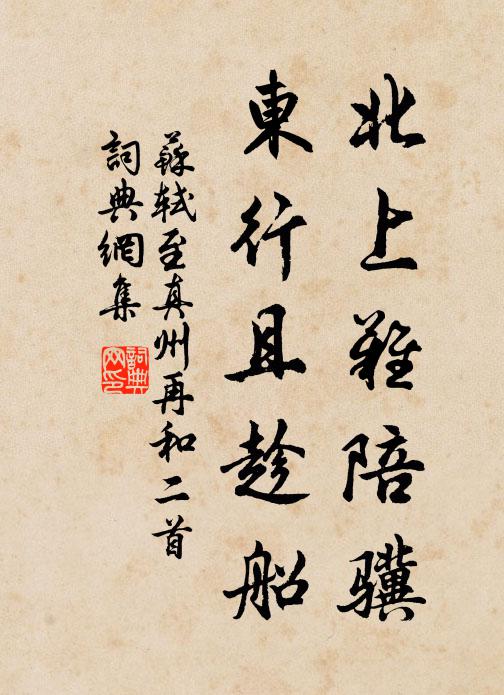 北上難陪驥
東行且趁船
蘇軾至真州再和二首
詞典網集
詞典網印